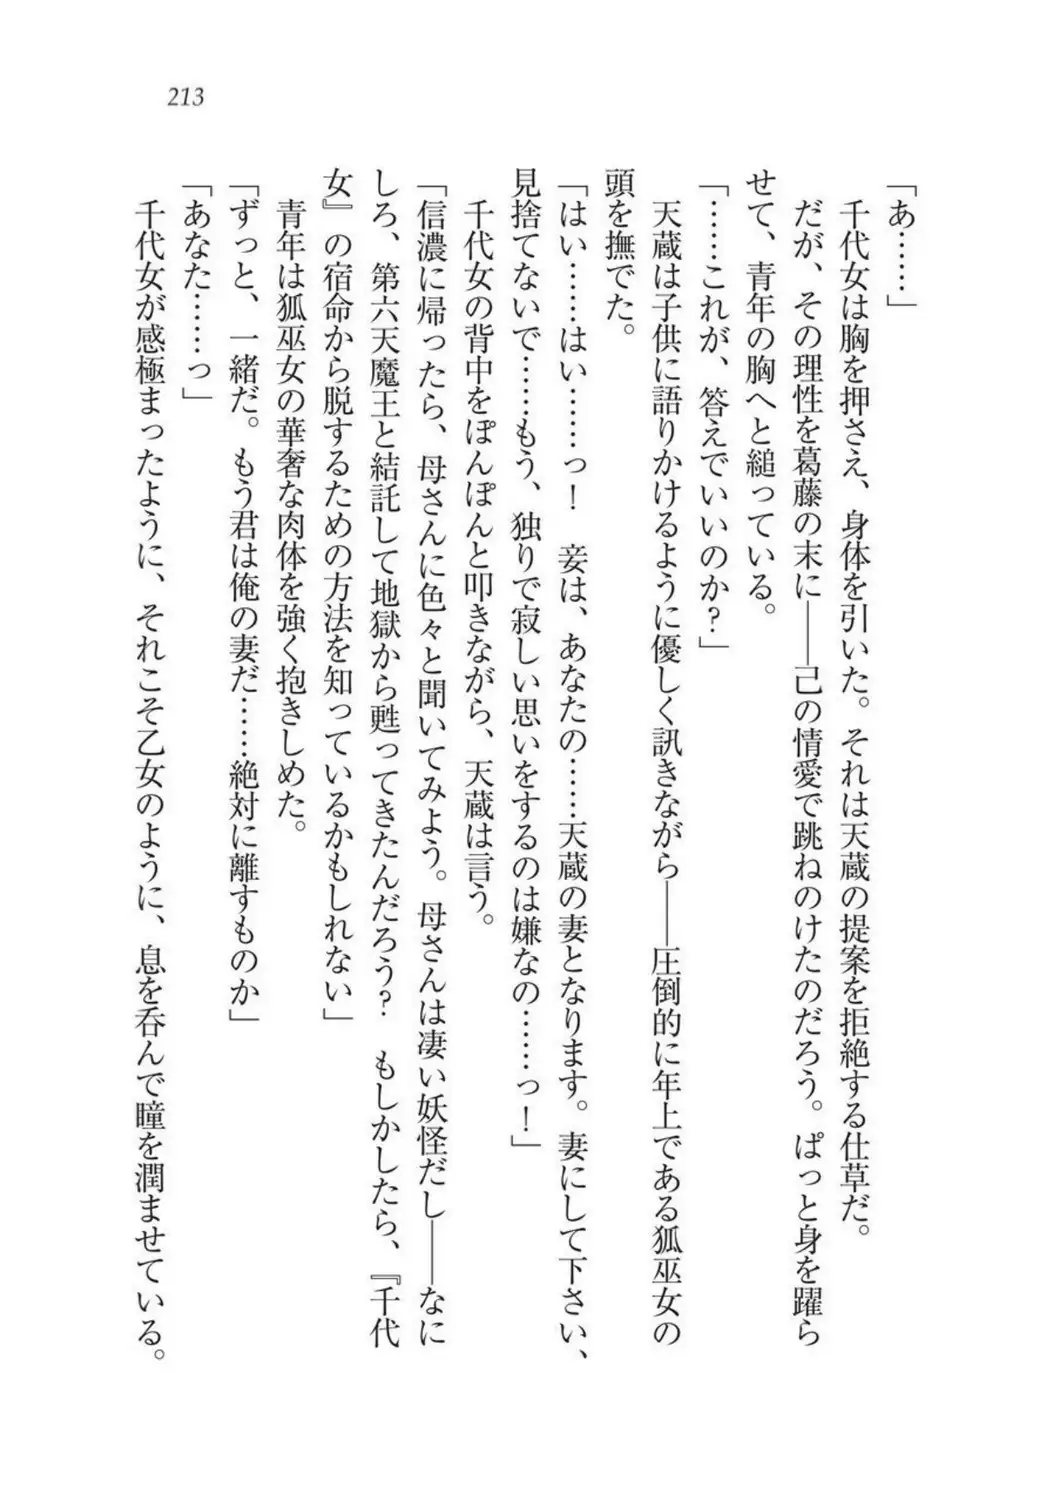 213
「あ……」
　千代女は胸を押さえ、身体を引いた。それは天蔵の提案を拒絶する仕草だ。
　だが、その理性を葛藤の末に――己の情愛で跳ねのけたのだろう。ぱっと身を躍ら
せて、青年の胸へと縋っている。
「……これが、答えでいいのか？」
　天蔵は子供に語りかけるように優しく訊きながら――圧倒的に年上である狐巫女の
頭を撫でた。
「はい……はい……っ！　妾は、あなたの……天蔵の妻となります。妻にして下さい、
見捨てないで……もう、独りで寂しい思いをするのは嫌なの……っ！」
　千代女の背中をぽんぽんと叩きながら、天蔵は言う。
「信濃に帰ったら、母さんに色々と聞いてみよう。母さんは凄い妖怪だし――なに
しろ、第六天魔王と結託して地獄から甦ってきたんだろう？　もしかしたら、『千代
女』の宿命から脱するための方法を知っているかもしれない」
　青年は狐巫女の華奢な肉体を強く抱きしめた。
「ずっと、一緒だ。もう君は俺の妻だ……絶対に離すものか」
「あなた……っ」
　千代女が感極まったように、それこそ乙女のように、息を呑んで瞳を潤ませている。